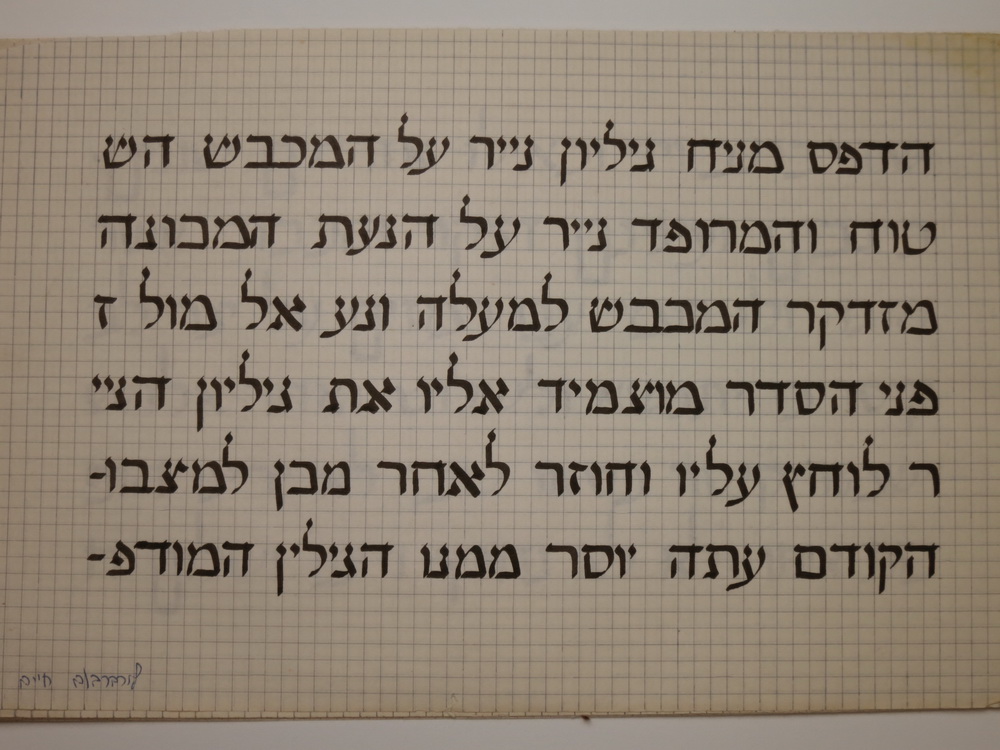 הדפס מניח גיליון נייר על המכבש הש
טוח והמרופד נייר על הנעת המכונה
מזדקר המכבש למעלה ונע אל מול ז
פני הסדר מוצמיד אליו את גיליון הניי
ר לוחץ עליו וחוזר לאחר מכן למצבו-
הקודם עתה יוסר ממנו הגילין המודפ-
חיים